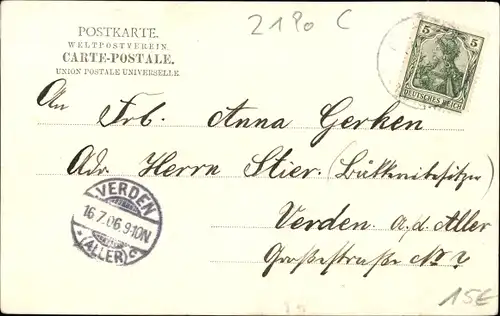 2180 C
POSTKARTE.
WELTPOSTVEREIN.
CARTE-POSTALE.
UNION POSTALE UNIVERSELLE
5 5
DEUTSCHES REICH
An Frl. Anna Gerken
Adr. Herrn Stier.
Verden a.d. Aller
Großestraße No ?
VERDEN
16.7.06.9-10N.
* (ALLER) c
15€